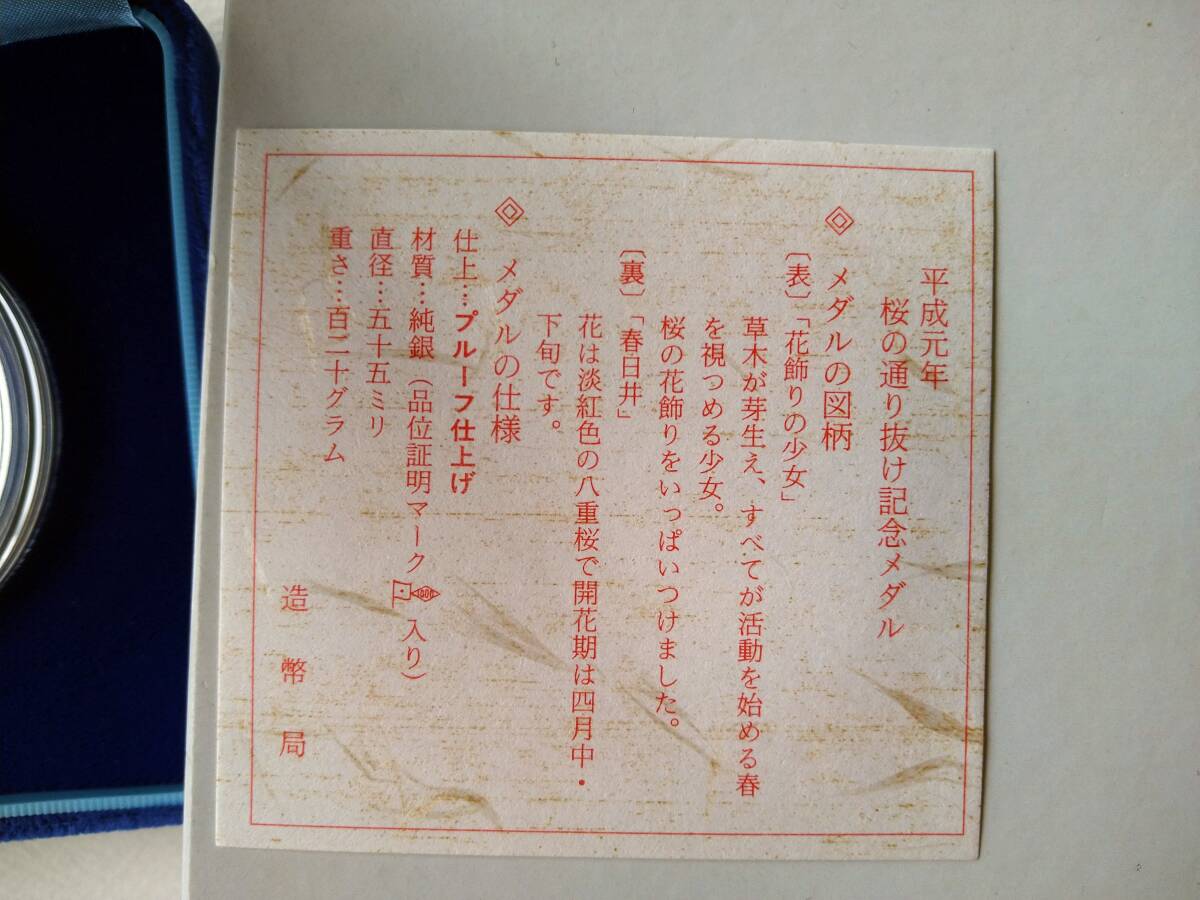 平成元年
桜の通り抜け記念メダル
◈ メダルの図柄
〔表〕「花飾りの少女」
草木が芽生え、すべてが活動を始める春
を視つめる少女。
桜の花飾りをいっぱいつけました。
〔裏〕「春日井」
花は淡紅色の八重桜で開花期は四月中・
下旬です。
◈ メダルの仕様
仕上…プルーフ仕上げ
材質…純銀（品位証明マーク 1000 入り）
直径…五十五ミリ
重さ…百二十グラム
造幣局